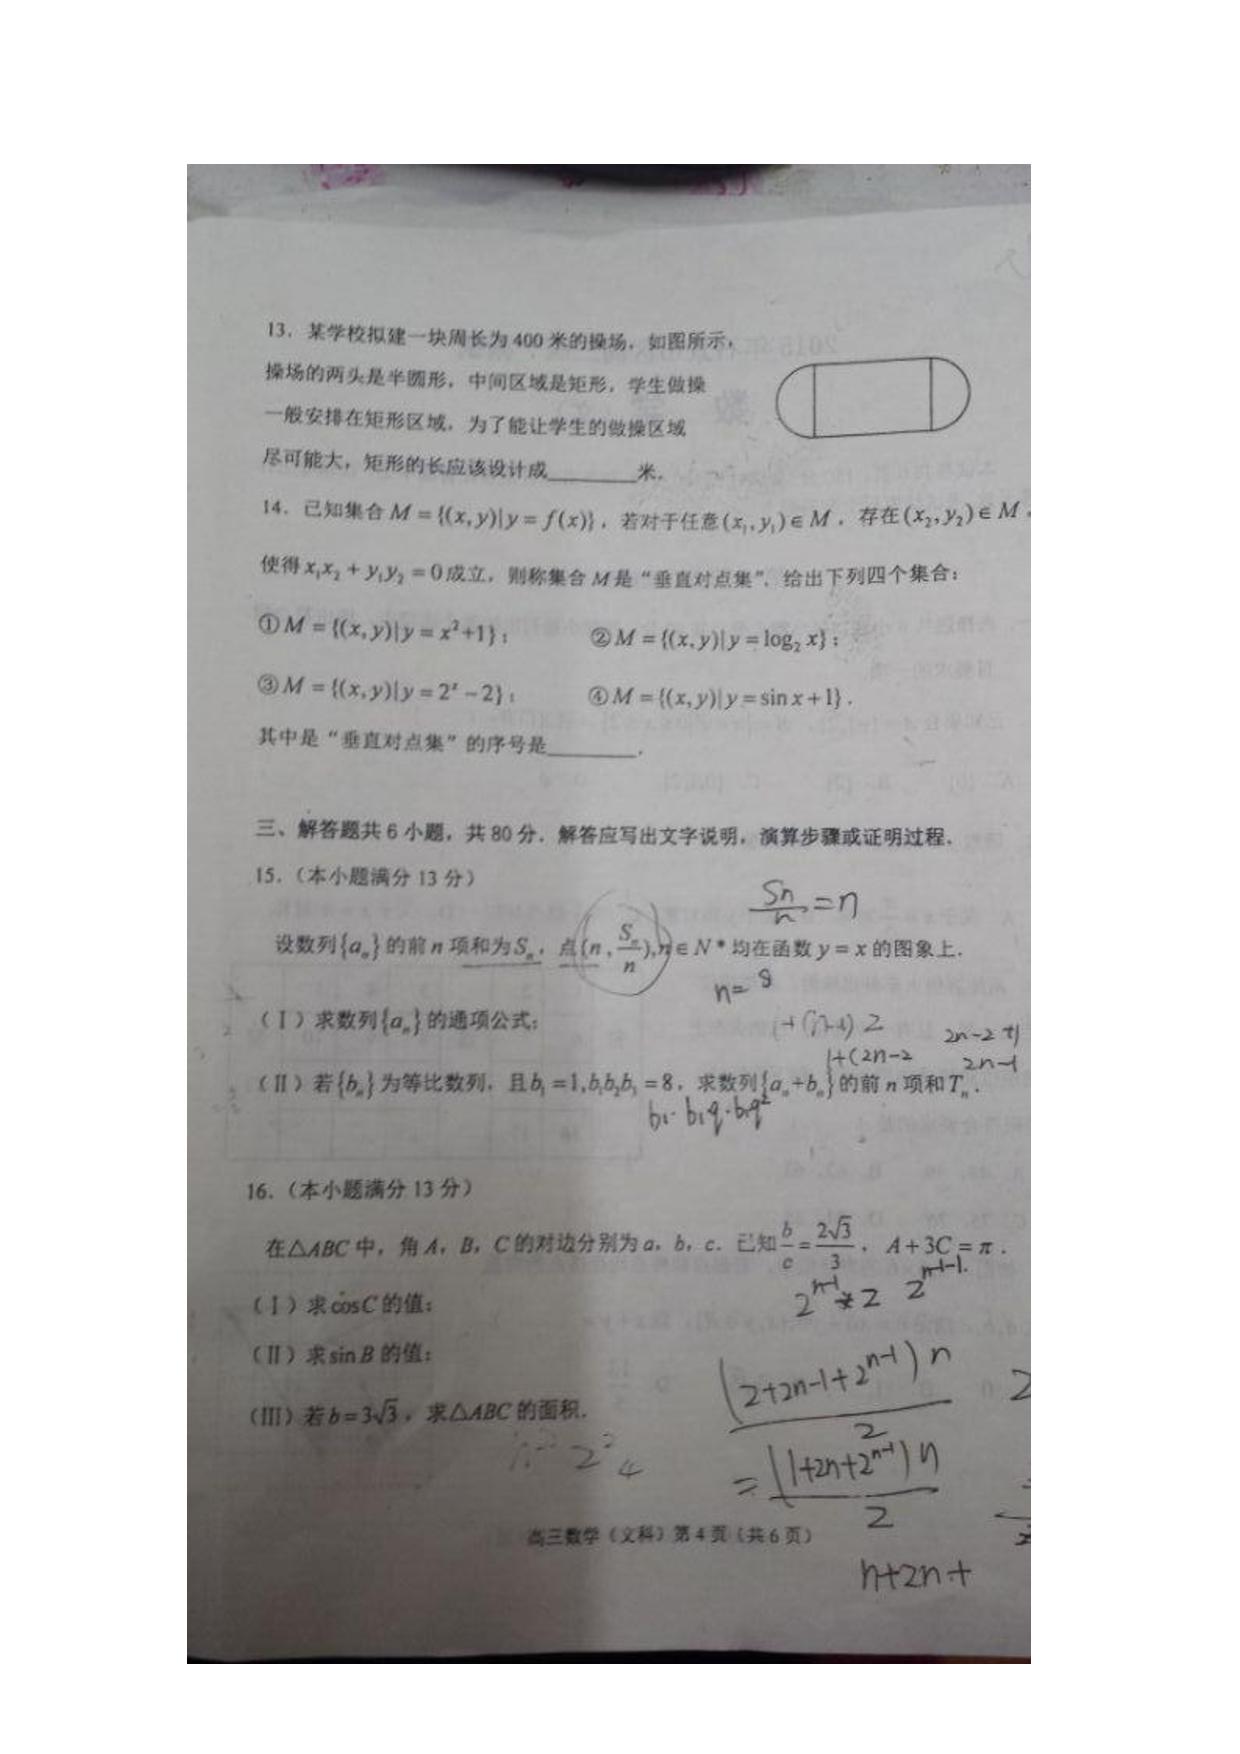 13．某学校拟建一块周长为 400 米的操场，如图所示，
操场的两头是半圆形，中间区域是矩形，学生做操
一般安排在矩形区域，为了能让学生的做操区域
尽可能大，矩形的长应该设计成________米．
14．已知集合 M = {(x, y)| y = f(x)}，若对于任意 (x₁, y₁) ∈ M，存在 (x₂, y₂) ∈ M，
使得 x₁x₂ + y₁y₂ = 0 成立，则称集合 M 是“垂直对点集”．给出下列四个集合：
①M = {(x, y)| y = x²+1}； ②M = {(x, y)| y = log₂ x}；
③M = {(x, y)| y = 2ˣ − 2}； ④M = {(x, y)| y = sin x + 1}．
其中是“垂直对点集”的序号是________．
三、解答题共 6 小题，共 80 分．解答应写出文字说明，演算步骤或证明过程．
15．（本小题满分 13 分）
Sn/n = n
设数列{aₙ}的前 n 项和为 Sₙ，点 (n, Sₙ/n), n ∈ N* 均在函数 y = x 的图象上．
n=
（Ⅰ）求数列{aₙ}的通项公式；
1+(n-1)2 2n-2+1
1+(2n-2 2n-1
（Ⅱ）若{bₙ}为等比数列，且 b₁ = 1, b₁b₂b₃ = 8，求数列{aₙ+bₙ}的前 n 项和 Tₙ．
b₁·b₁q·b₁q²
16．（本小题满分 13 分）
在△ABC 中，角 A，B，C 的对边分别为 a，b，c．已知 b/c = 2√3/3，A + 3C = π．
（Ⅰ）求 cosC 的值；
2ⁿ⁻¹*2 2ⁿ⁻¹⁻¹
（Ⅱ）求 sin B 的值；
(2+2n-1+2ⁿ⁻¹)n/2
（Ⅲ）若 b = 3√3，求△ABC 的面积．
2² 4
=(1+2n+2ⁿ⁻¹)n/2
高三数学（文科）第 4 页（共 6 页）
n+2n+